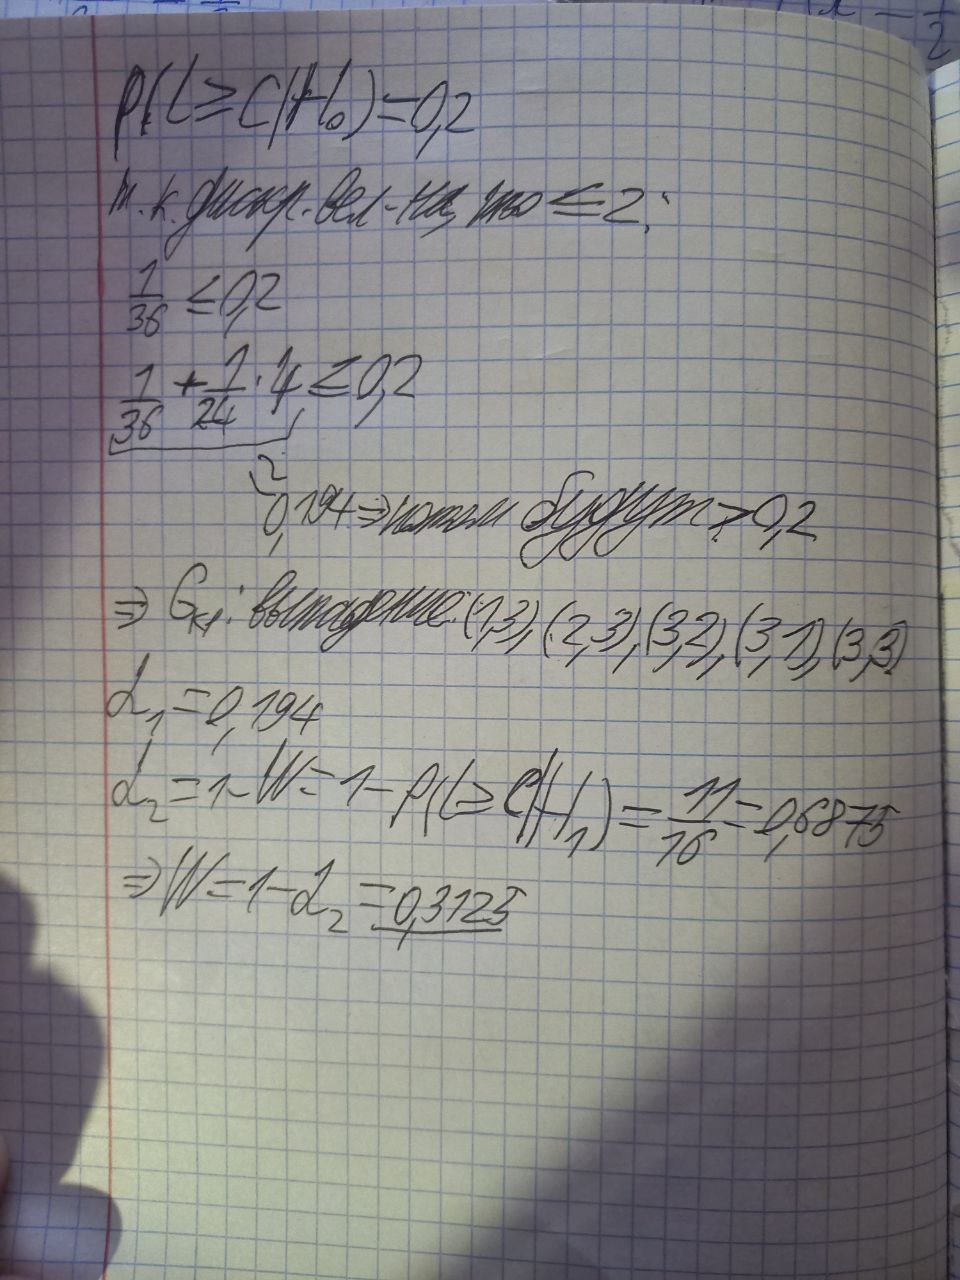 P(l ≥ C|H₀) = 0,2
т.к. дискр. вел-на, то ≤ 2:
1/36 ≤ 0,2
1/36 + 1/24 · 4 ≤ 0,2
≈ 0,194 ⇒ потом будут > 0,2
⇒ Gкр: выпадение: (1,3), (2,3), (3,2), (3,1), (3,3)
α₁ = 0,194
α₂ = 1 - W = 1 - P(l ≥ C|H₁) = 11/16 = 0,6875
⇒ W = 1 - α₂ = 0,3125